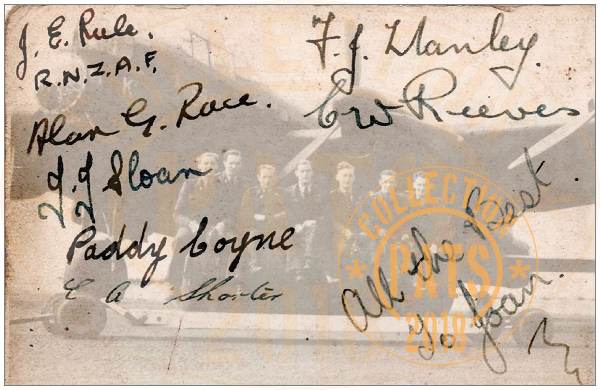 J. E. Rule.
R.N.Z.A.F.
Alan G. Race.
J. J Sloan
Paddy Coyne
E A Shorter
F. J. Hanley.
C W Reeves
All the Best
To Joan.
COLLECTION
PATS
2018